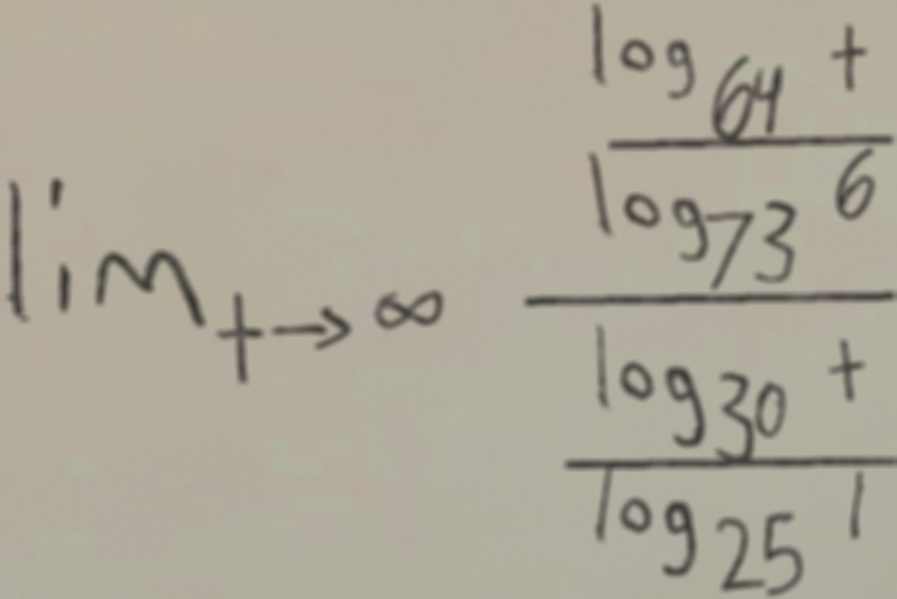 lim t→∞ \frac{\frac{log_{64} t}{log_{73} 6}}{\frac{log_{30} t}{log_{25} 1}}